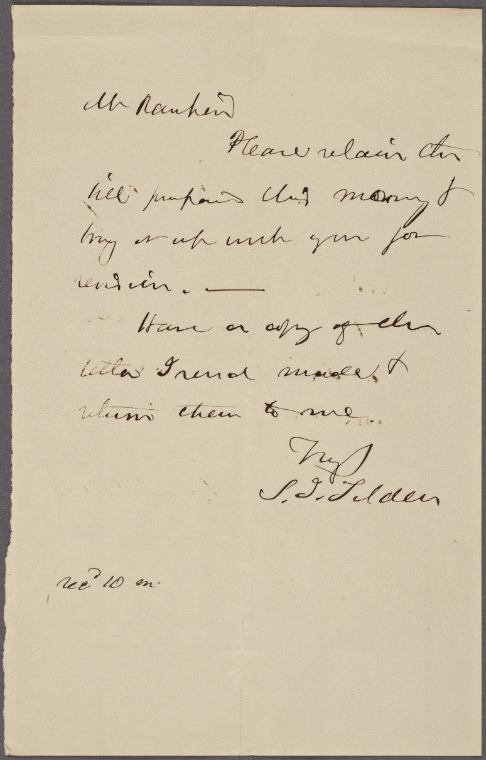 Mr Rankin
Please retain the
bill prepared this morning &
bring it up with you for
revision. —
Have a copy of the
letter I send made &
return them to me
Truly
S. J. Tilden
recd 10 m.